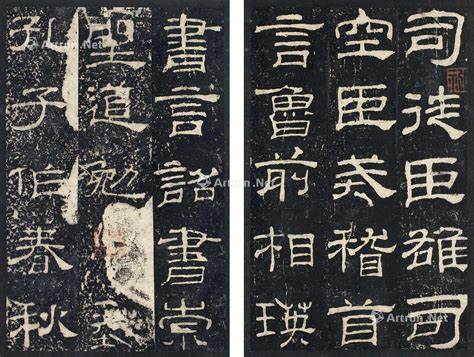 司徒臣雄司
空臣戒稽首
言魯前相瑛
書言詔書崇
聖道勉
孔子作春秋
Artron.Net